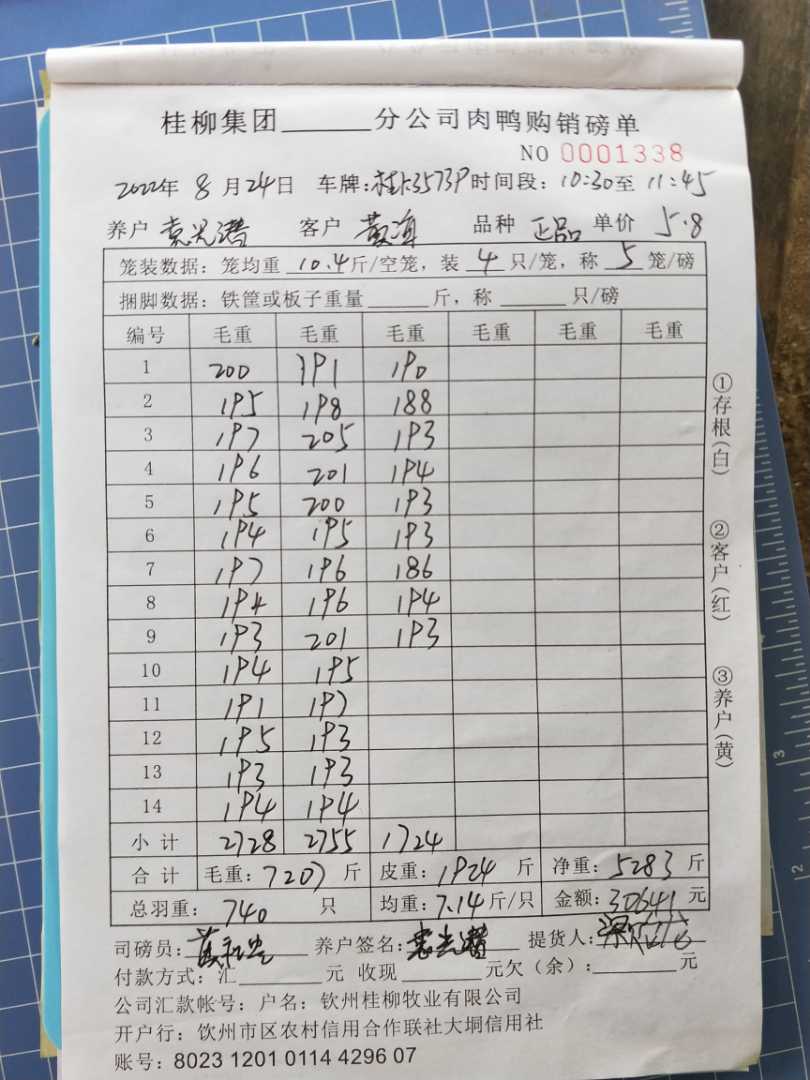 桂柳集团______分公司肉鸭购销磅单
NO 0001338
2022年 8 月 24日 车牌:桂L3573P 时间段: 10:30至 11:45
养户 袁光潜 客户 黄海 品种 正品 单价 5.8
笼装数据: 笼均重 10.4斤/空笼, 装 4 只/笼, 称 5 笼/磅
捆脚数据: 铁筐或板子重量______斤, 称______只/磅
编号 毛重 毛重 毛重 毛重 毛重 毛重
1 200 191 190
2 195 198 188
3 197 205 193
4 196 201 194
5 195 200 193
6 194 195 193
7 197 196 186
8 194 196 194
9 193 201 193
10 194 195
11 191 197
12 195 193
13 193 193
14 194 194
小计 2728 2755 1724
合计 毛重: 7207 斤 皮重: 1924 斤 净重: 5283 斤
总羽重: 740 只 均重: 7.14斤/只 金额: 30641 元
司磅员: 养户签名: 袁光潜 提货人:
付款方式: 汇______元 收现______元欠(余):______元
公司汇款帐号: 户名: 钦州桂柳牧业有限公司
开户行: 钦州市区农村信用合作联社大垌信用社
账号: 8023 1201 0114 4296 07
①存根(白)
②客户(红)
③养户(黄)